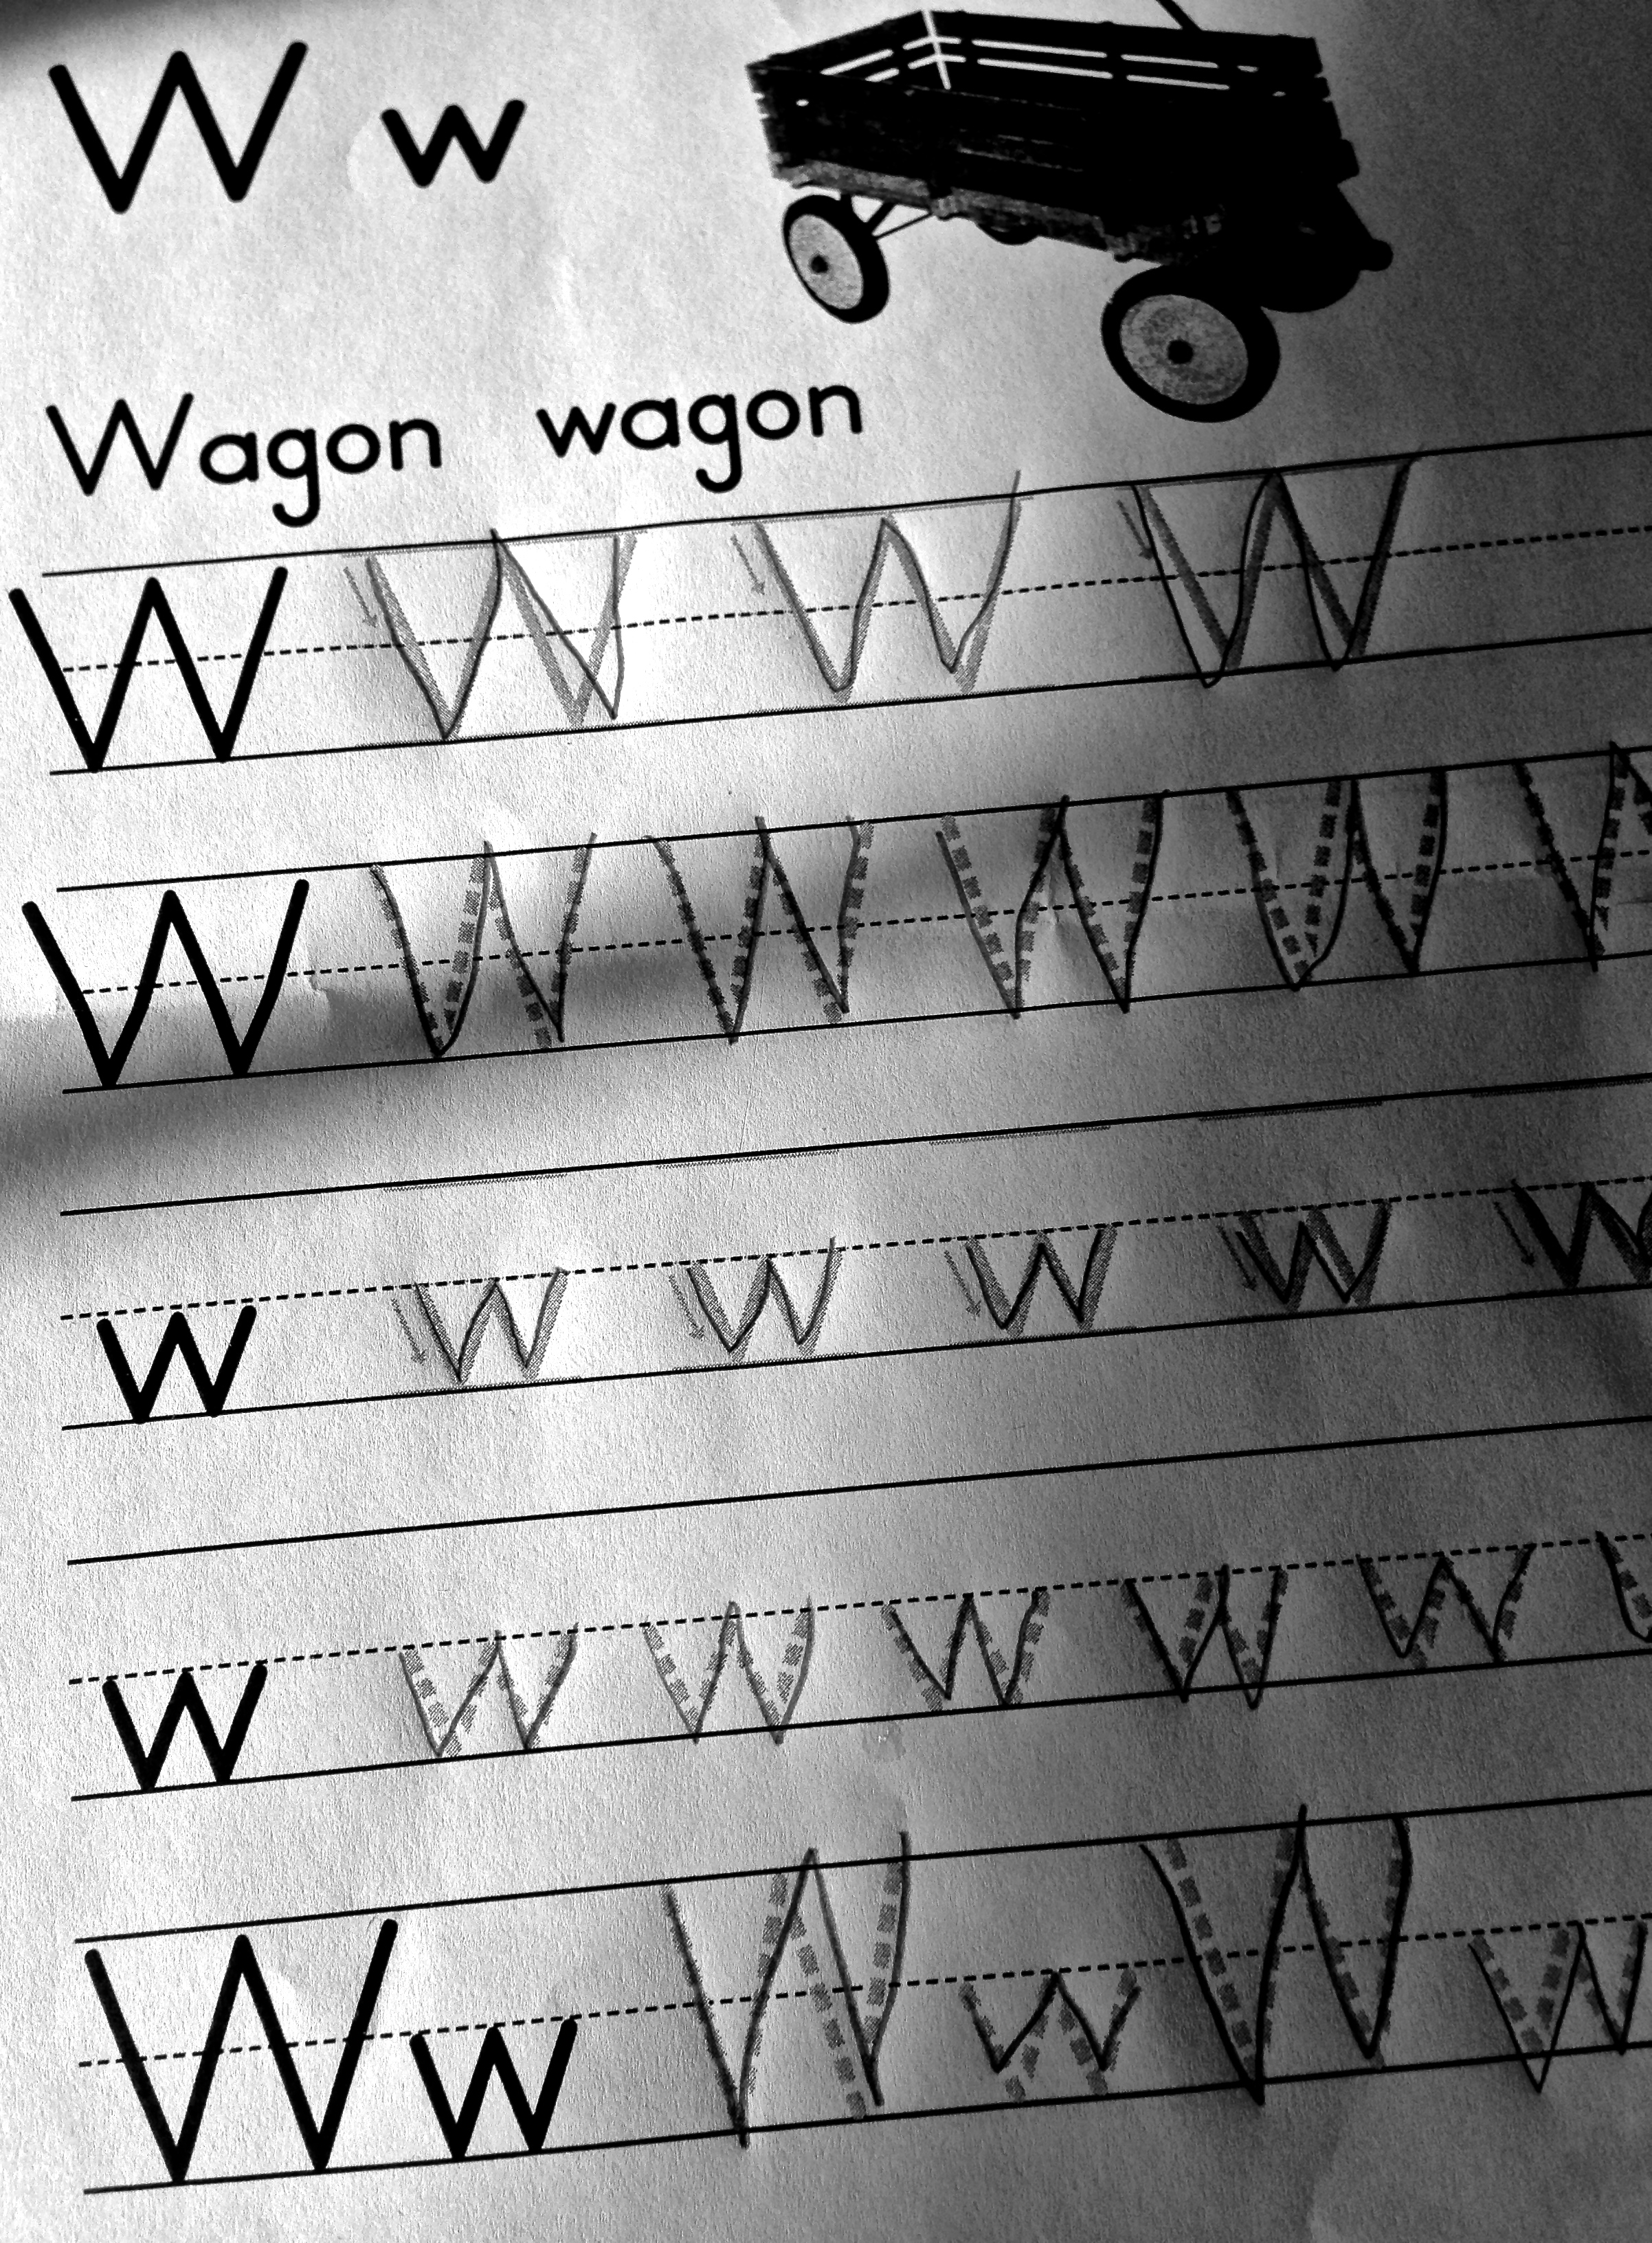 W w
Wagon wagon
W W W W
W W W W W W
w w w w w w
w w w w w w
W w W w W w